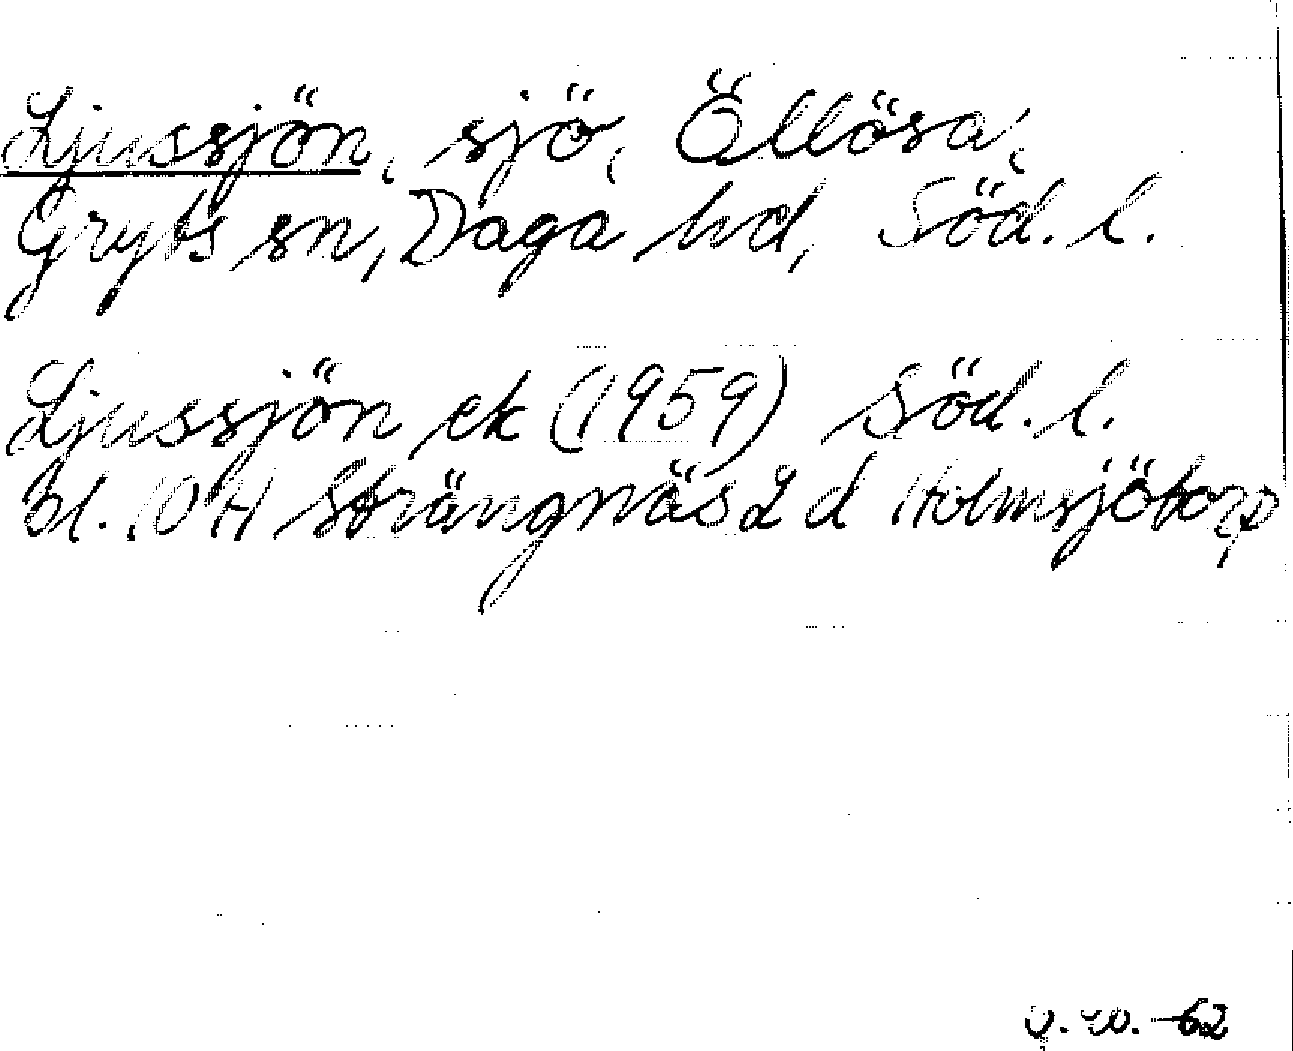 Ljussjön, sjö, Öllösa,
Gryts sn, Daga hd, Söd. l.
Ljussjön ek (1959) Söd. l.
bl. 10 H Strängnäs 2 d Holmsjötorp
-62